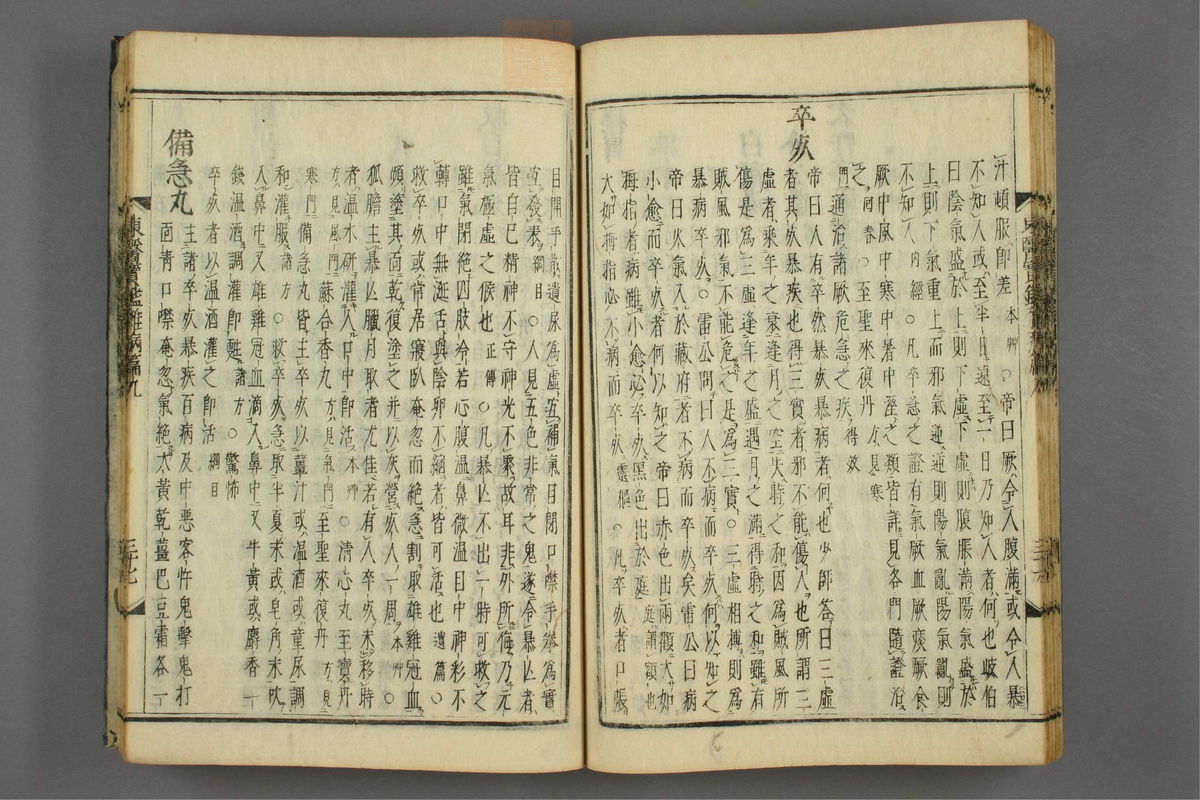 汁頓服卽差本艸○帝曰厥令人腹滿或令人暴
不知人或至半日遠至一日乃知人者何也岐伯
曰陰氣盛於上則下虛下虛則腹脹滿陽氣盛於
上則下氣重上而邪氣逆逆則陽氣亂陽氣亂則
不知人內經○凡卒厥之證有氣厥血厥痰厥食
厥中風中寒中暑中濕之類皆詳見各門隨證治
之回春○至聖來復丹方見寒
門通治諸厥危急之疾得效
卒死
帝曰人有卒然暴死暴病者何也少師答曰三虛
者其死暴疾也得三實者邪不能傷人也所謂三
虛者乘年之衰逢月之空失時之和因爲賊風所
傷是爲三虛逢年之盛遇月之滿得時之和雖有
賊風邪氣不能危之是爲三實○三虛相搏則爲
暴病卒死○雷公問曰人不病而卒死何以知之
帝曰大氣入於藏府者不病而卒死矣雷公曰病
小愈而卒死者何以知之帝曰赤色出兩顴大如
拇指者病雖小愈必卒死黑色出於庭庭謂額也
大如拇指必不病而卒死靈樞○凡卒死者口張
目開手散遺尿爲虛宜補氣目閉口噤手拳爲實
宜發表綱目○人見五色非常之鬼遂令暴亡者
皆自己精神不守神光不聚故耳非外所侮乃元
氣極虛之候也正傳○凡暴亡不出一時可救之
雖氣閉絶四肢冷若心腹溫鼻微溫目中神彩不
轉口中無涎舌與陰卵不縮者皆可活也遺篇○
救卒死或常居寢臥奄忽而絶急割取雄雞冠血
頻塗其面乾復塗之幷以灰營死人一周本艸○
狐膽主暴亡臘月取者尤佳若有人卒死未移時
者溫水硏灌入口中卽活本艸○淸心丸至寶丹
方見風門蘇合香丸方見氣門至聖來復丹方見
寒門備急丸皆主卒死以薑汁或溫酒或童尿調
和灌服諸方○救卒死急取半夏末或皂角末吹
入鼻中又雄雞冠血滴入鼻中又牛黃或麝香一
錢溫酒調灌卽甦諸方○驚怖
卒死者以溫酒灌之卽活綱目
備急丸主諸卒死暴疾百病及中惡客忤鬼擊鬼打
面靑口噤奄忽氣絶大黃乾薑巴豆霜各一
東醫寶鑑雜病篇九